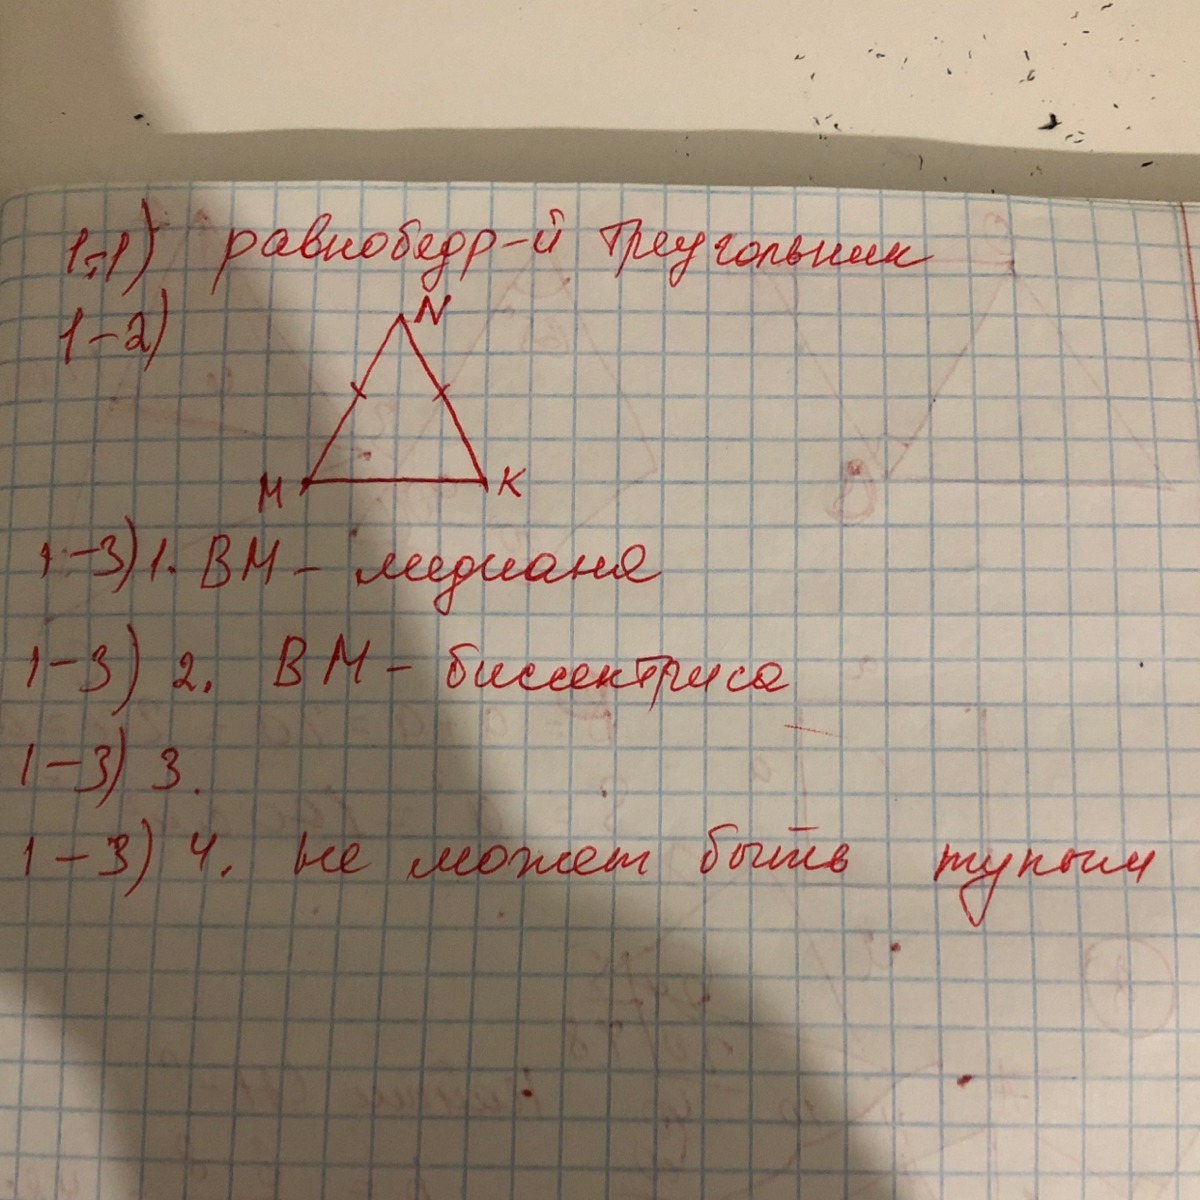 1-1) равнобедр-й треугольник
1-2)
N
M K
1-3) 1. ВМ - медиана
1-3) 2. ВМ - биссектриса
1-3) 3.
1-3) 4. не может быть тупым